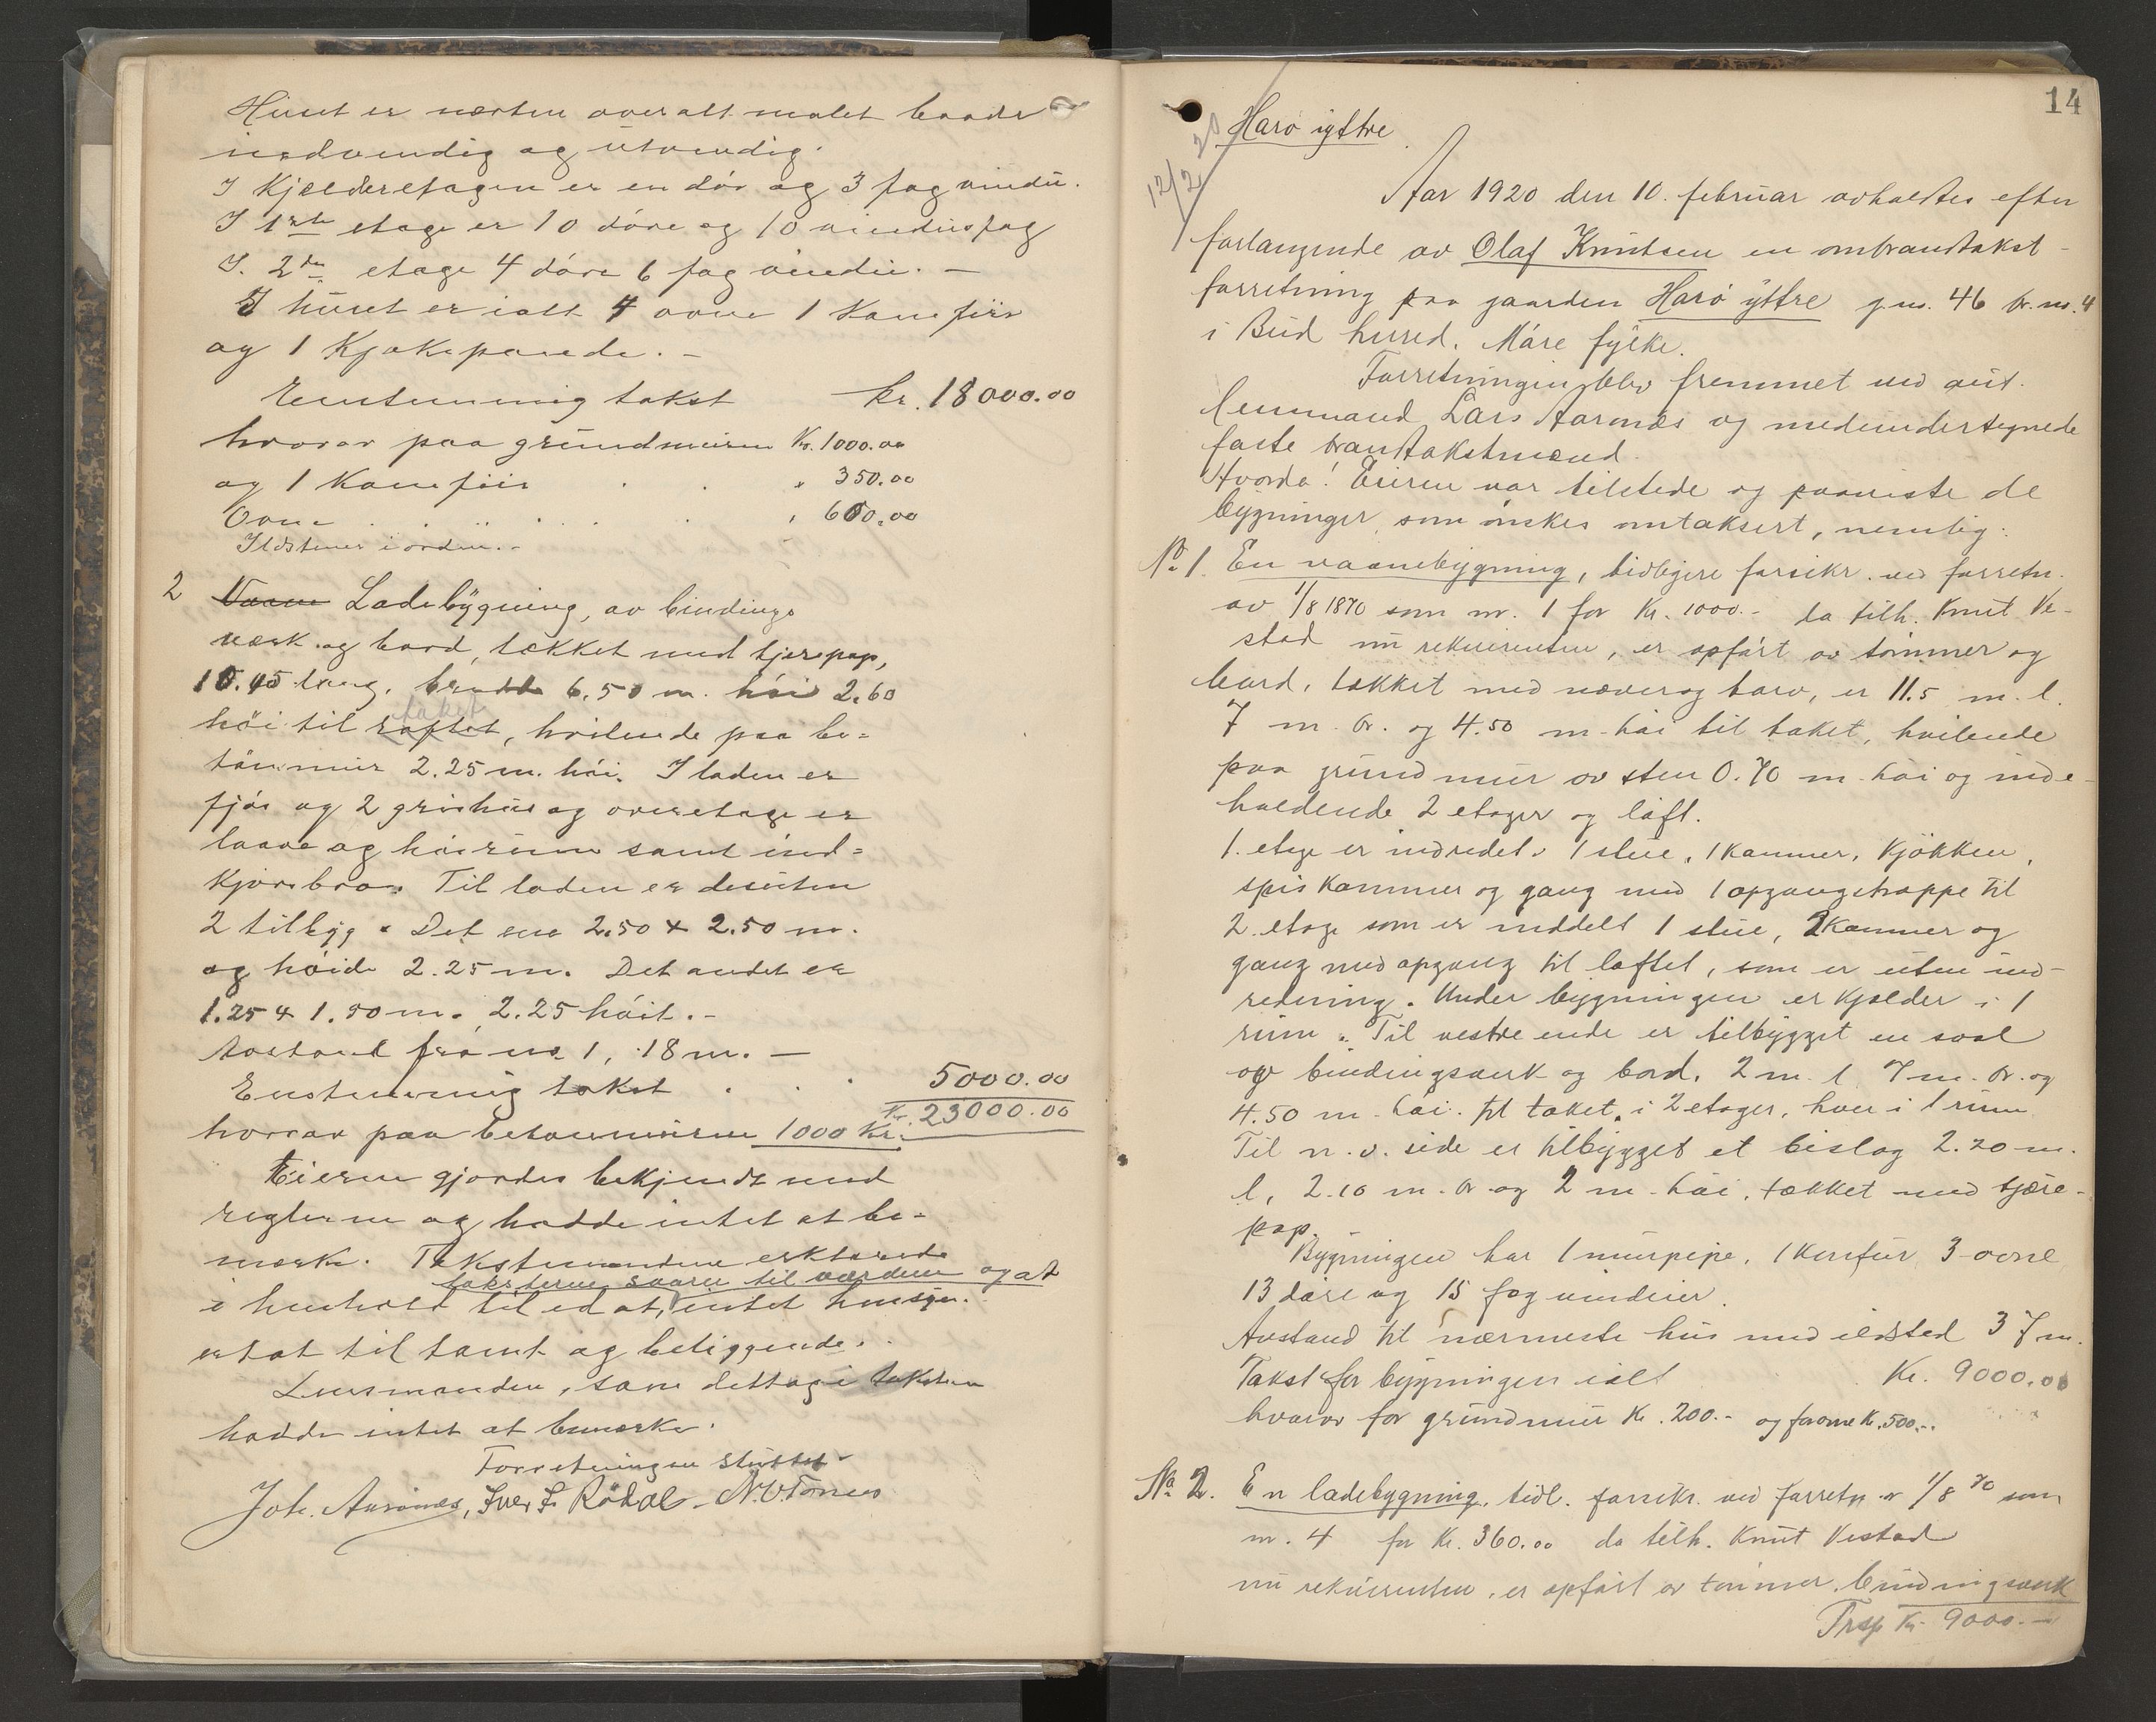 Huset er næsten overalt malet baade
indvendig og utvendig.
I Kjælderetagen er en dör og 3 fag vindu.
I 1ste etage er 10 döre og 10 vindusfag
I. 2den etage 4 döre 6 fag vindu. —
I huset er ialt 4 ovne 1 Komfür
og 1 . —
Enstemmig takst kr. 18000.00
hvorav paa grundmuren Kr. 1000.00
og 1 Komfüir . . " 350.00
Ovne . . . . . . " 600.00
Ildstener i orden. -
2 Vaane Ladebygning, av bindings
værk og bord, tækket med tjærepap,
10.45 lang, bredde 6.50 m. höi 2.60
taket
höi til raftet, hvilende paa be=
tonmur 2.25 m. höi. I laden er
fjös og 2 grishus og overetage er
laave og höirum samt ind=
kjörsbro. Til laden er desuten
2 tilbyg. Det ene 2.50 x 2.50 m.
og höide 2.25 m. Det andet er
1.25 x 1.50 m. 2.25 höit. -
Avstand fra no 1, 18 m. —
Enstemmig takst . . . 5000.00
Kr. 23000.00
hvorav paa betonmuren 1000 Kr.
Eieren gjordes bekjendt med
reglerne og hadde intet at be=
mærke. Takstmændene erklærede
taksterne svarer til værdien og at
i henhold til ed at intet hensyn
er tat til tomt og beliggende.
Lensmanden, som deltog i taksten
hadde intet at bemærke.
Forretningen sluttet
Joh. Aarönæs, Iver L. Rödal - N. V. Tornes
14
12/2 20
Harö ÿttre
Aar 1920 den 10. februar avholdtes efter
forlangende av Olaf Knutsen en ombrandtakst-
forretning paa gaarden Harö ÿttre g.no. 46 br.no. 4
i Bud herred. Möre fylke.
Forretningen blev fremmet ved aut.
lensmand Lars Aarönæs og medundertegnede
faste brandtakstmænd.
Hvorda! Eieren var tilstede og paaviste de
bygninger som önskes omtaksert, nemlig:
No 1. En vaanebygning, tidligere forsikr. ved forretn.
av 1/8 1870 som nr. 1 for Kr. 1000.- da tilh. Knut Ve-
stad nu rekvirenten, er opfört av tömmer og
bord, tækket med næver og torv, er 11.5 m. l.
7 m. br. og 4.50 m. höi til taket, hvilende
paa grundmur av sten 0.70 m. höi og inde-
holdende 2 etager og loft.
1. etage er indredet. 1 stue, 1 kammer, kjökken,
spiskammer og gang med 1 opgangstrappe til
2. etage som er inddelt 1 stue, 2 kammer og
gang med opgang til loftet, som er uten ind-
redning. Under bygningen er kjælder i 1
rum. Til vestre ende er tilbygget en sval
av bindingsverk og bord, 2 m. l. 7 m. br. og
4.50 m. höi til taket, i 2 etager, hver i 1 rum
Til n.v. side er tilbygget et bislag 2.20 m.
l, 2.10 m. br. og 2 m. höi, tækket med tjære-
pap.
Bygningen har 1 murpipe, 1 komfür 3 ovne
13 döre og 15 fag vinduer.
Avstand til nærmeste hus med ildsted 37 m.
Takst for bygningen ialt Kr. 9000.00
hvorav for grundmur Kr. 200.- og for ovne Kr. 500.-.
No 2. En ladebygning, tidl. forsikr. ved forretn. av 1/8 70 som
nr. 4 for Kr. 360.00 da tilh. Knut Vestad
nu rekvirenten, er opfört av tömmer, bindingsverk
Trsp Kr. 9000.-